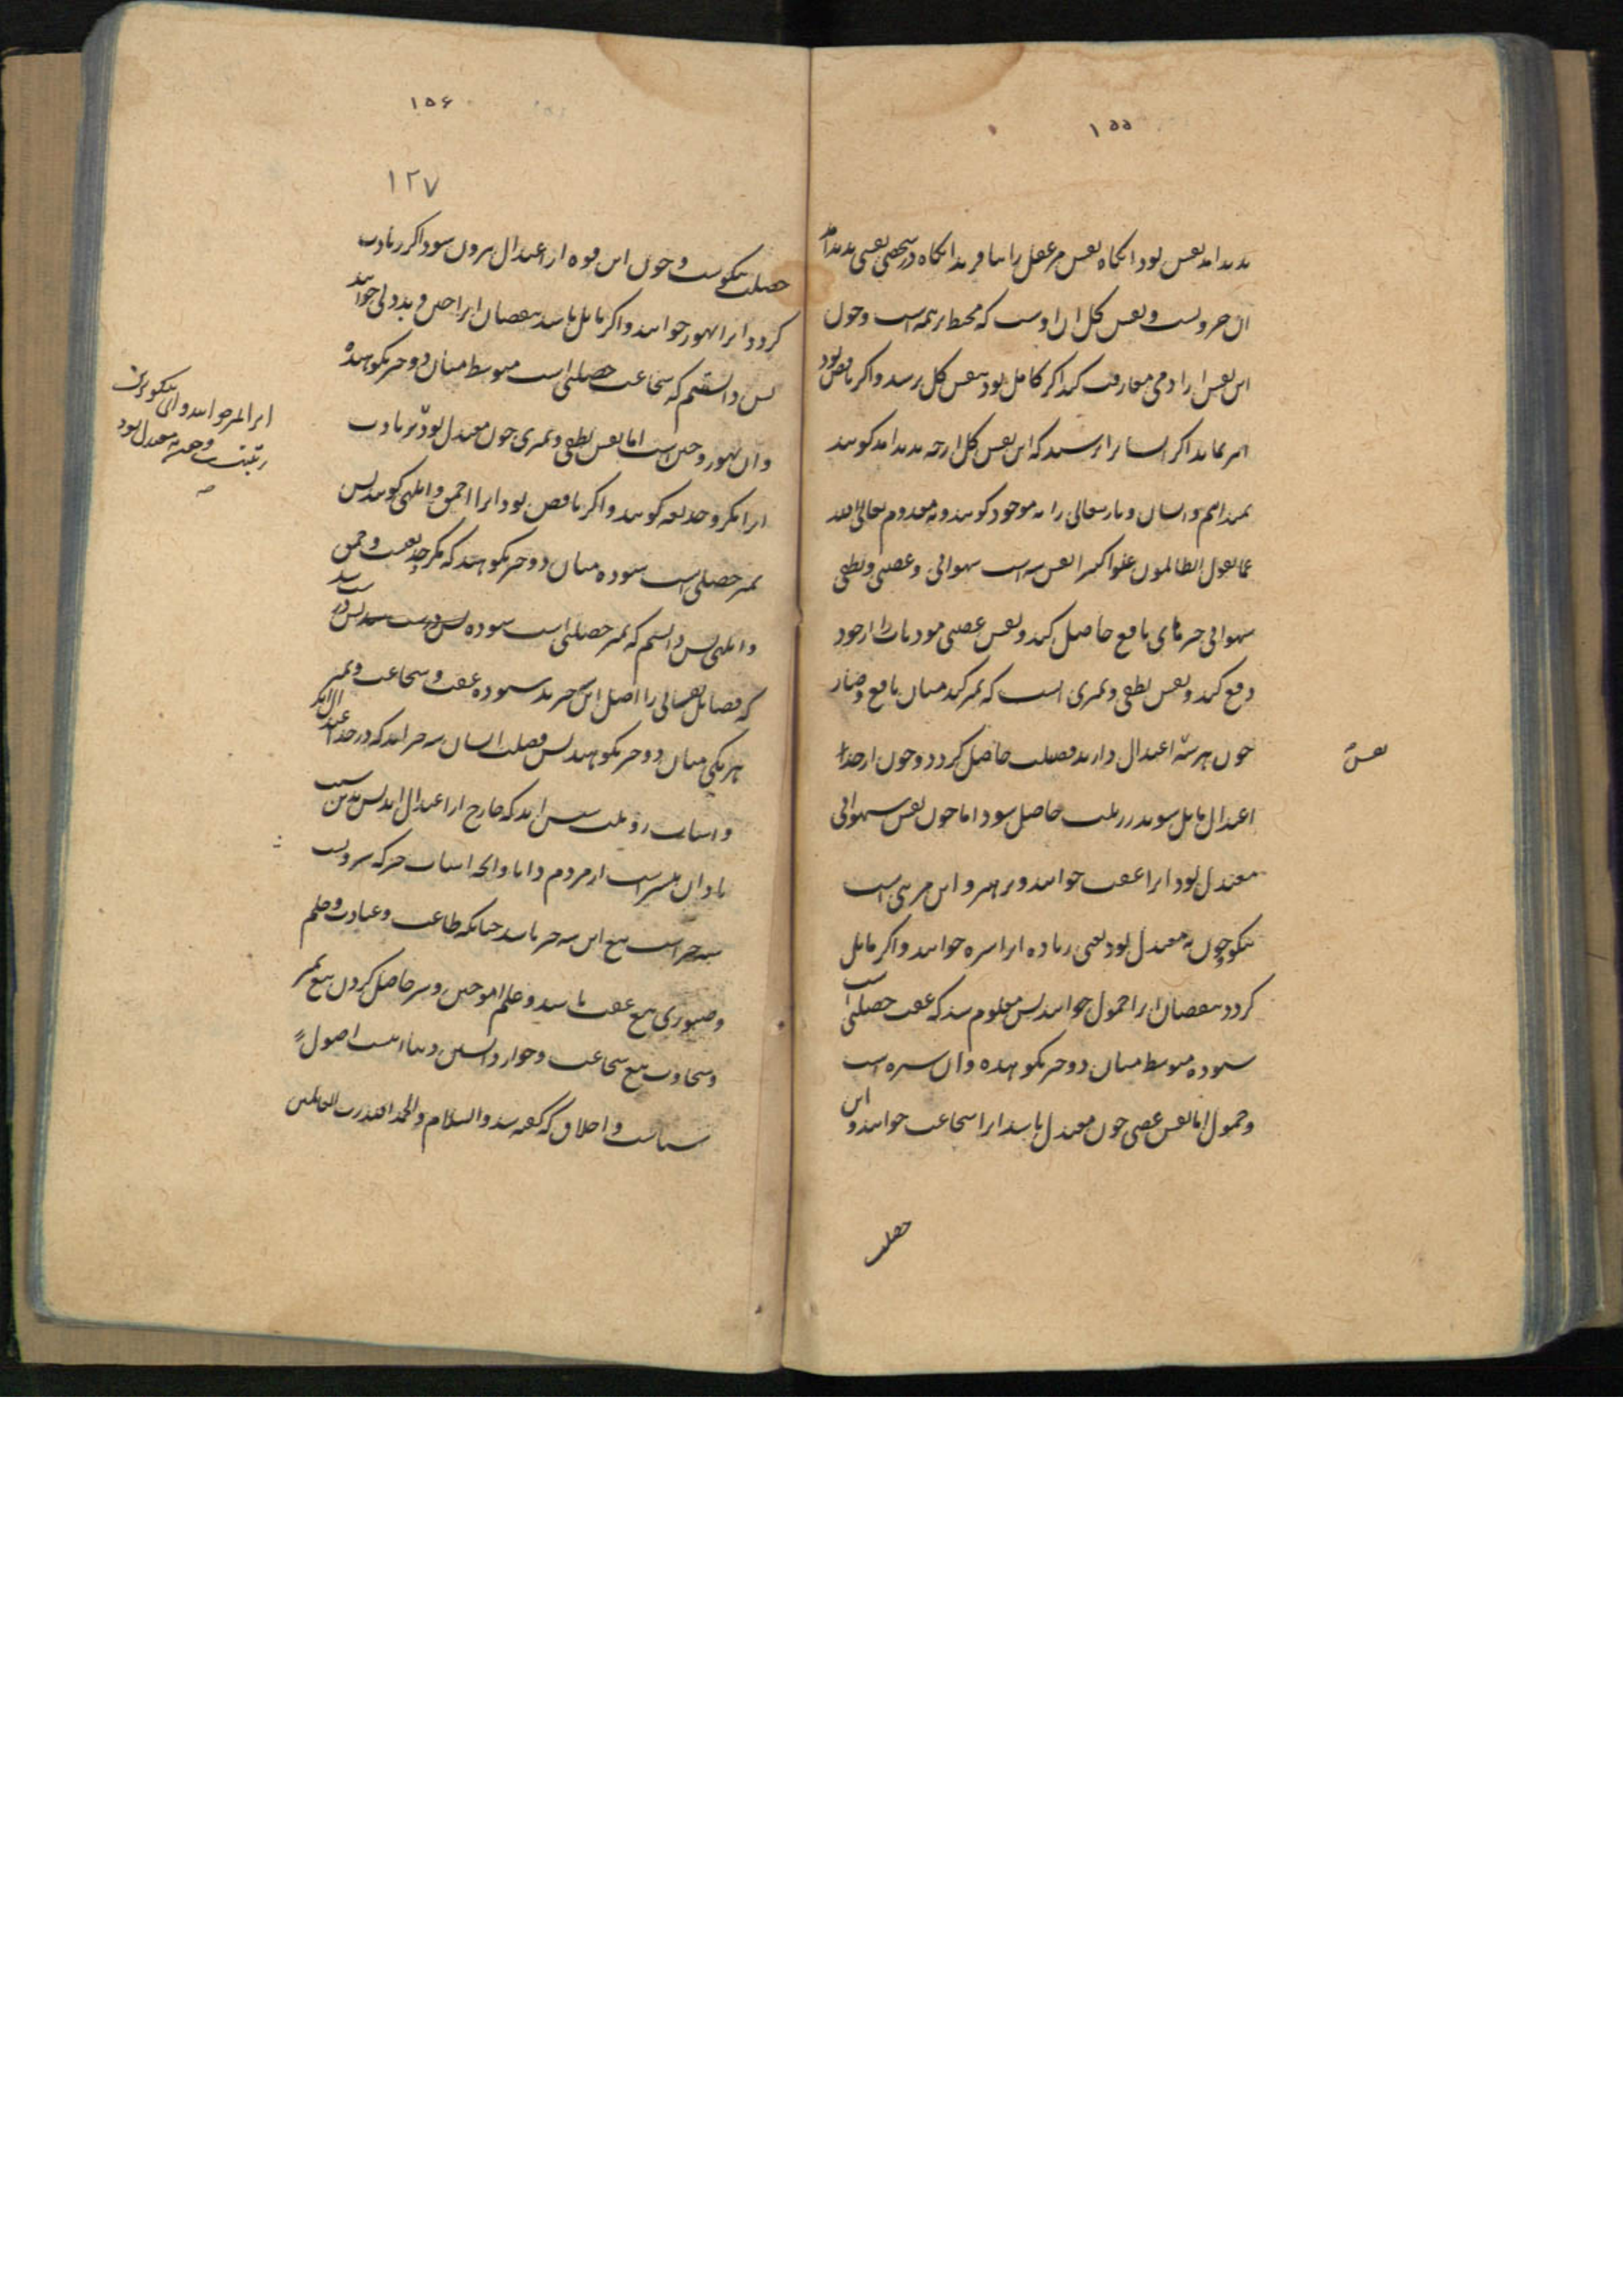 ۱۵۵
پدید آمد نفس بود آنگاه نفس مر عقل را بیافرید آنگاه در شخصی نفسی پدید آمد
آن جزویست و نفس کل آن اوست که محیط بر همه است و چون
این نفس از آدمی مفارقت کند اگر کامل بود بنفس کل برسد و اگر ناقص بود
اگر ایشانرا پرسند که این نفس کل از چه پدید آمد گویند
ندانیم و ایشان و باریتعالی را نه موجود گویند و نه معدوم تعالی الله
عما یقول الظالمون علوا کبیرا نفس سه است شهوانی و غضبی و نطقی
شهوانی چیزهای نافع حاصل کند و نفس غضبی موذیات را از خود
دفع کند و نفس نطقی و تمیزی آنست که تمیز کند میان نافع و ضار
چون هر سه اعتدال دارند فضیلت حاصل گردد و چون از حد
نفس
اعتدال مایل شوند رذیلت حاصل شود اما چون نفس شهوانی
معتدل بود آنرا عفت خوانند و پرهیز و این چیزی است
نیکو چون نه معتدل بود یعنی زیاده آنرا شره خوانند و اگر مایل
گردد بنقصان آنرا خمول خوانند پس معلوم شد که عفت خصلتی است
ستوده متوسط میان دو چیز نکوهیده و آن شره است
و خمول اما نفس غضبی چون معتدل باشد آنرا شجاعت خوانند و این
خصلت
۱۵۶
۱۲۷
خصلت نیکوست و چون این قوه از اعتدال بیرون شود اگر زیادت
گردد آنرا تهور خوانند و اگر مایل باشد بنقصان آنرا جبن و بددلی خوانند
پس دانستیم که شجاعت خصلتی است متوسط میان دو چیز نکوهیده
و آن تهور و جبن است اما نفس نطقی و تمیزی چون معتدل بود
آنرا مکر و خدیعه گویند و اگر ناقص بود آنرا احمق و ابلهی گویند پس
تمیز خصلتی است ستوده میان دو چیز نکوهیده که مکر و خدیعت و حمق
و ابلهی پس دانستیم که تمیز خصلتی است ستوده
که فضایل نفسانی را اصل این چیزند ستوده عفت و شجاعت و تمیز
هر یکی میان دو چیز نکوهیده پس فضیلت انسان سه چیز اند که در حد اعتدال اند
و اسباب رذیلت شش اند که خارج از اعتدال اند پس بدین سبب
نادان بیشتر است از مردم دانا و اسباب خیر که سه
چیز است تبع این سه چیز باشد چنانکه طاعت و عبادت و حلم
و صبوری تبع عفت باشد و علم آموختن و سر حاصل کردن تبع تمیز
و سخاوت تبع شجاعت و خوار داشتن دنیا اینست اصول
سیاست و اخلاق که گفته شد والسلام والحمد لله رب العالمین